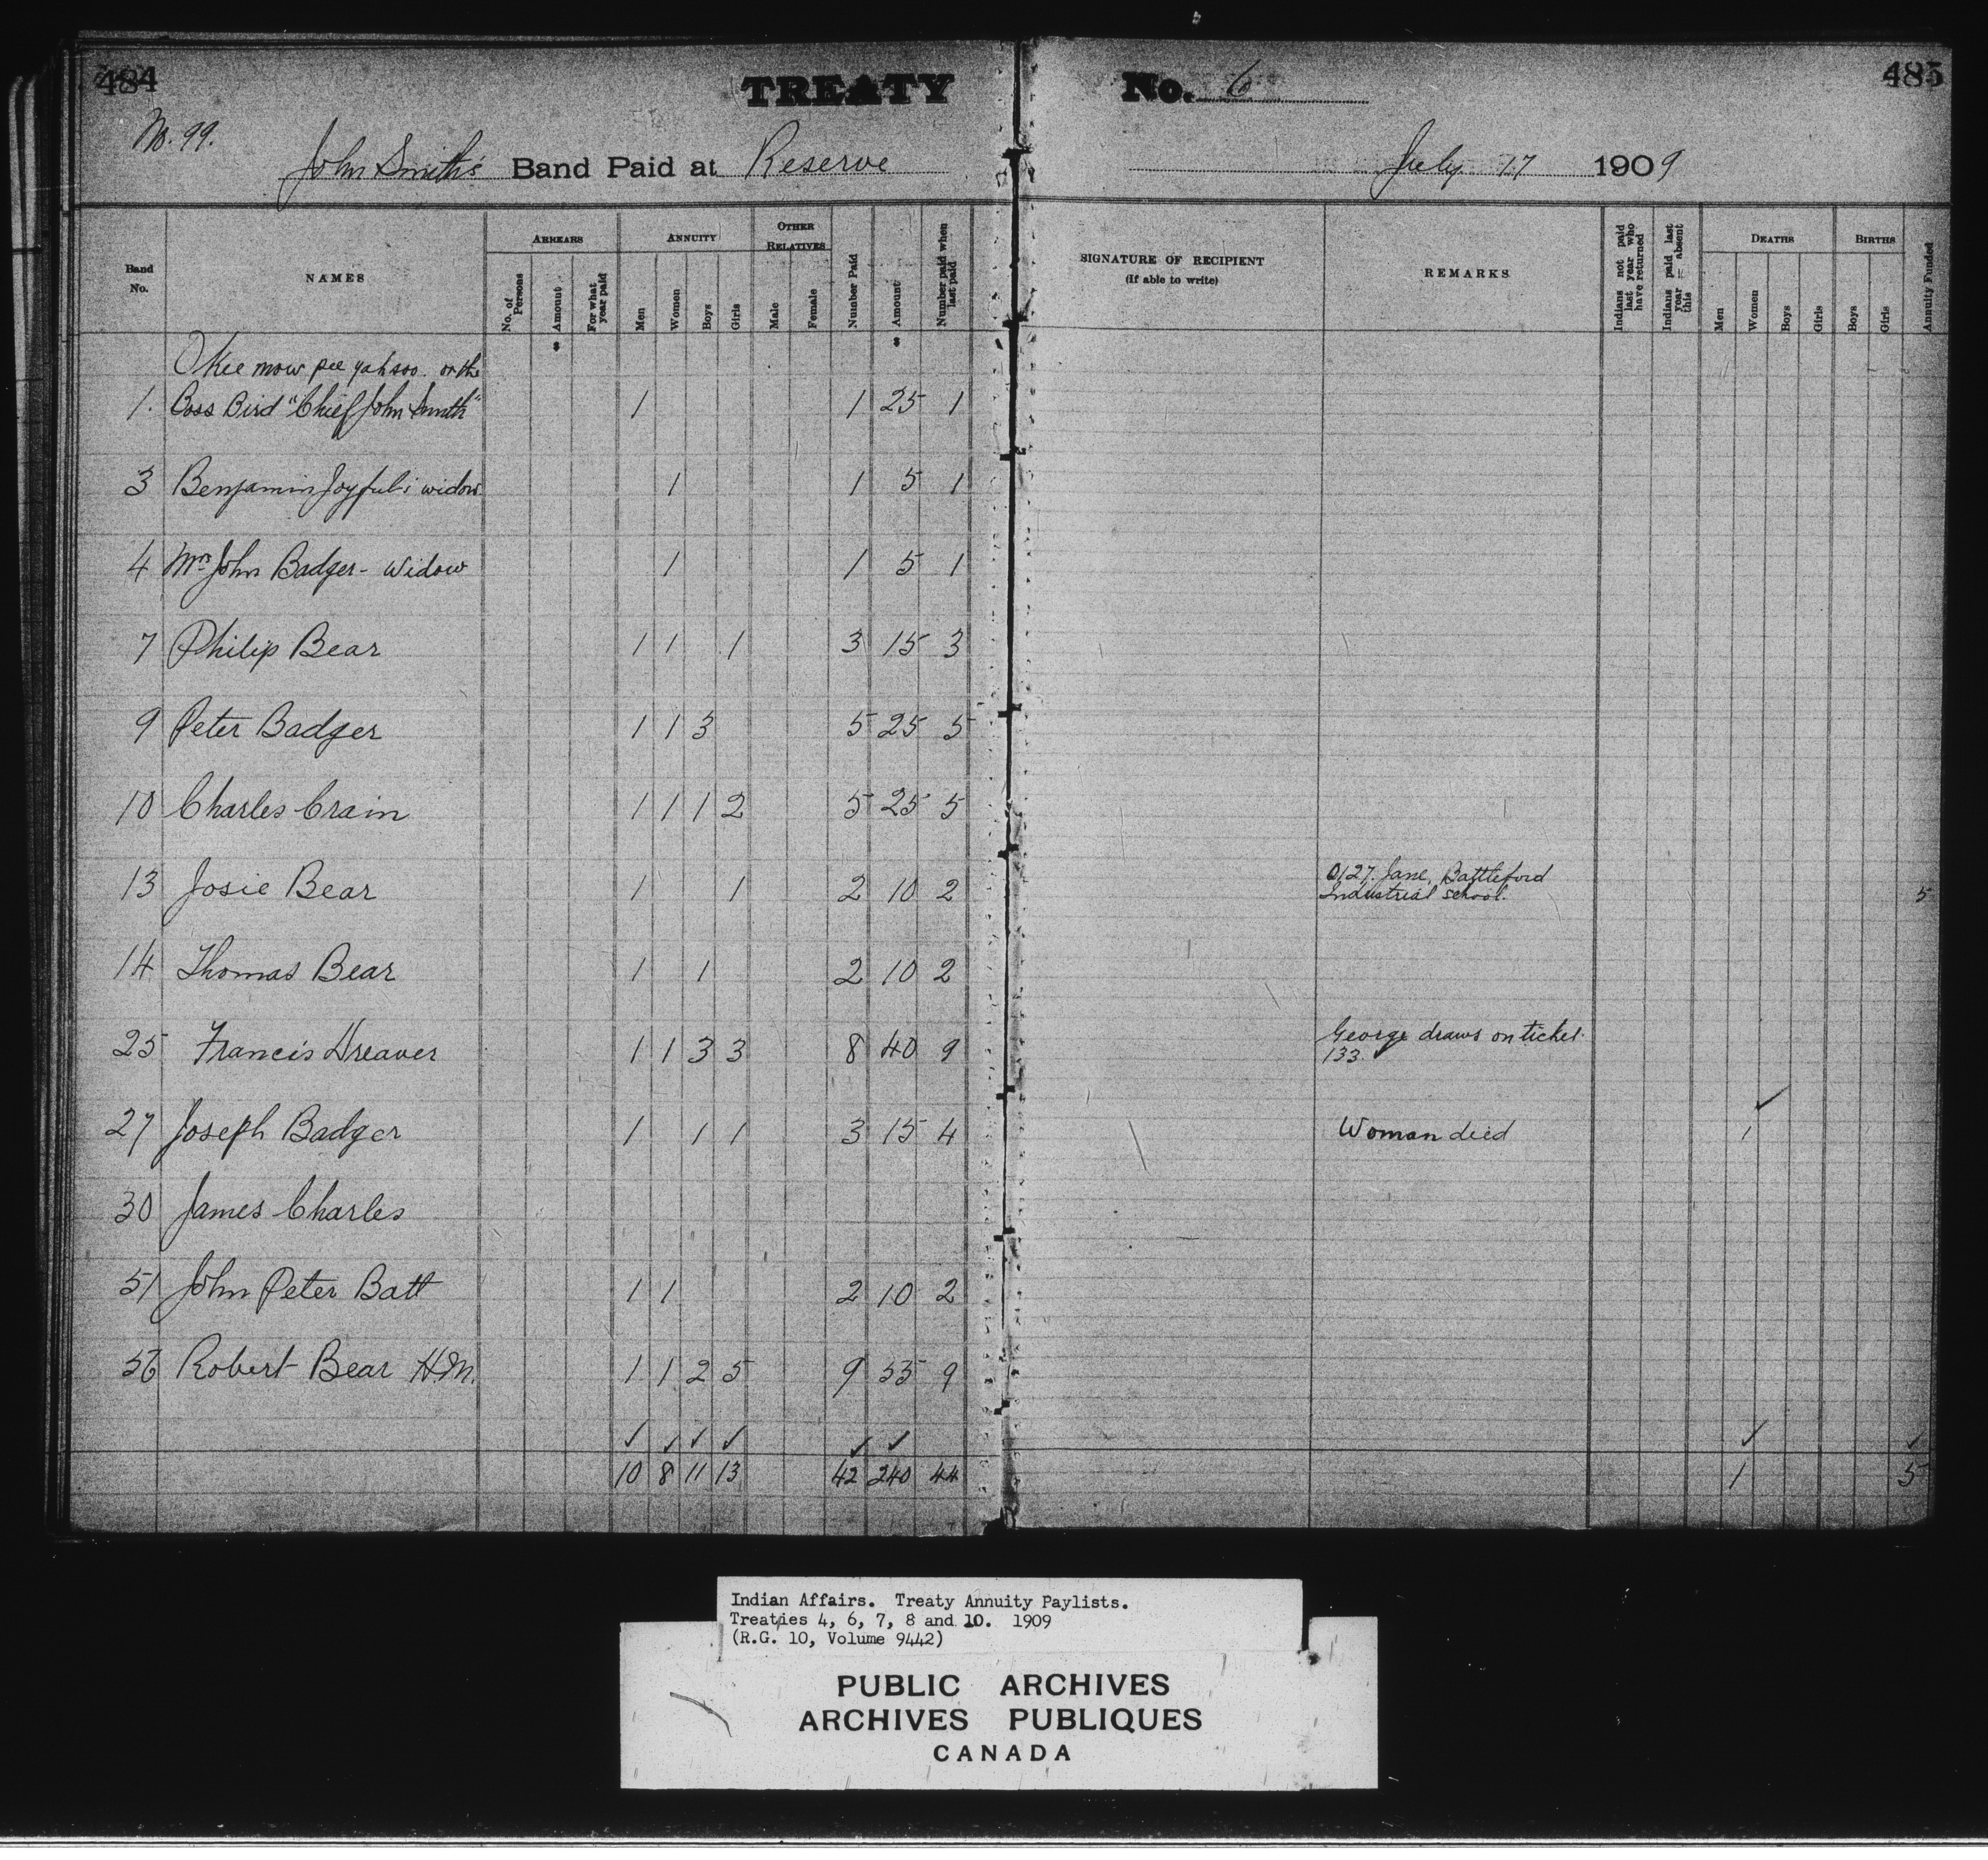 484 TREATY No. 6 485
No. 99.
John Smith's Band Paid at Reserve July 17 1909
Band No. NAMES ARREARS ANNUITY OTHER RELATIVES Number Paid Amount Number paid when last paid SIGNATURE OF RECIPIENT (If able to write) REMARKS Indians not paid last year who have returned Indians paid last year — absent this DEATHS BIRTHS Annuity Funded
No. of Persons Amount For what year paid Men Women Boys Girls Male Female Men Women Boys Girls Boys Girls
$ $
Okee mow pee yahsoo. or the
1. Boss Bird "Chief John Smith" 1 1 25 1
3 Benjamin Joyful's widow 1 1 5 1
4 Mrs John Badger - Widow 1 1 5 1
7 Philip Bear 1 1 1 3 15 3
9 Peter Badger 1 1 3 5 25 5
10 Charles Crain 1 1 1 2 5 25 5
13 Josie Bear 1 1 2 10 2 0127. Jane, Battleford
Industrial school. 5
14 Thomas Bear 1 1 2 10 2
25 Francis Dreaver 1 1 3 3 8 40 9 George draws on ticket
133
27 Joseph Badger 1 1 1 3 15 4 Woman died 1
30 James Charles
51 John Peter Batt 1 1 2 10 2
56 Robert Bear H.M. 1 1 2 5 9 55 9
10 8 11 13 42 240 44 1 5
Indian Affairs. Treaty Annuity Paylists.
Treaties 4, 6, 7, 8 and 10. 1909
(R.G. 10, Volume 9442)
PUBLIC ARCHIVES
ARCHIVES PUBLIQUES
CANADA